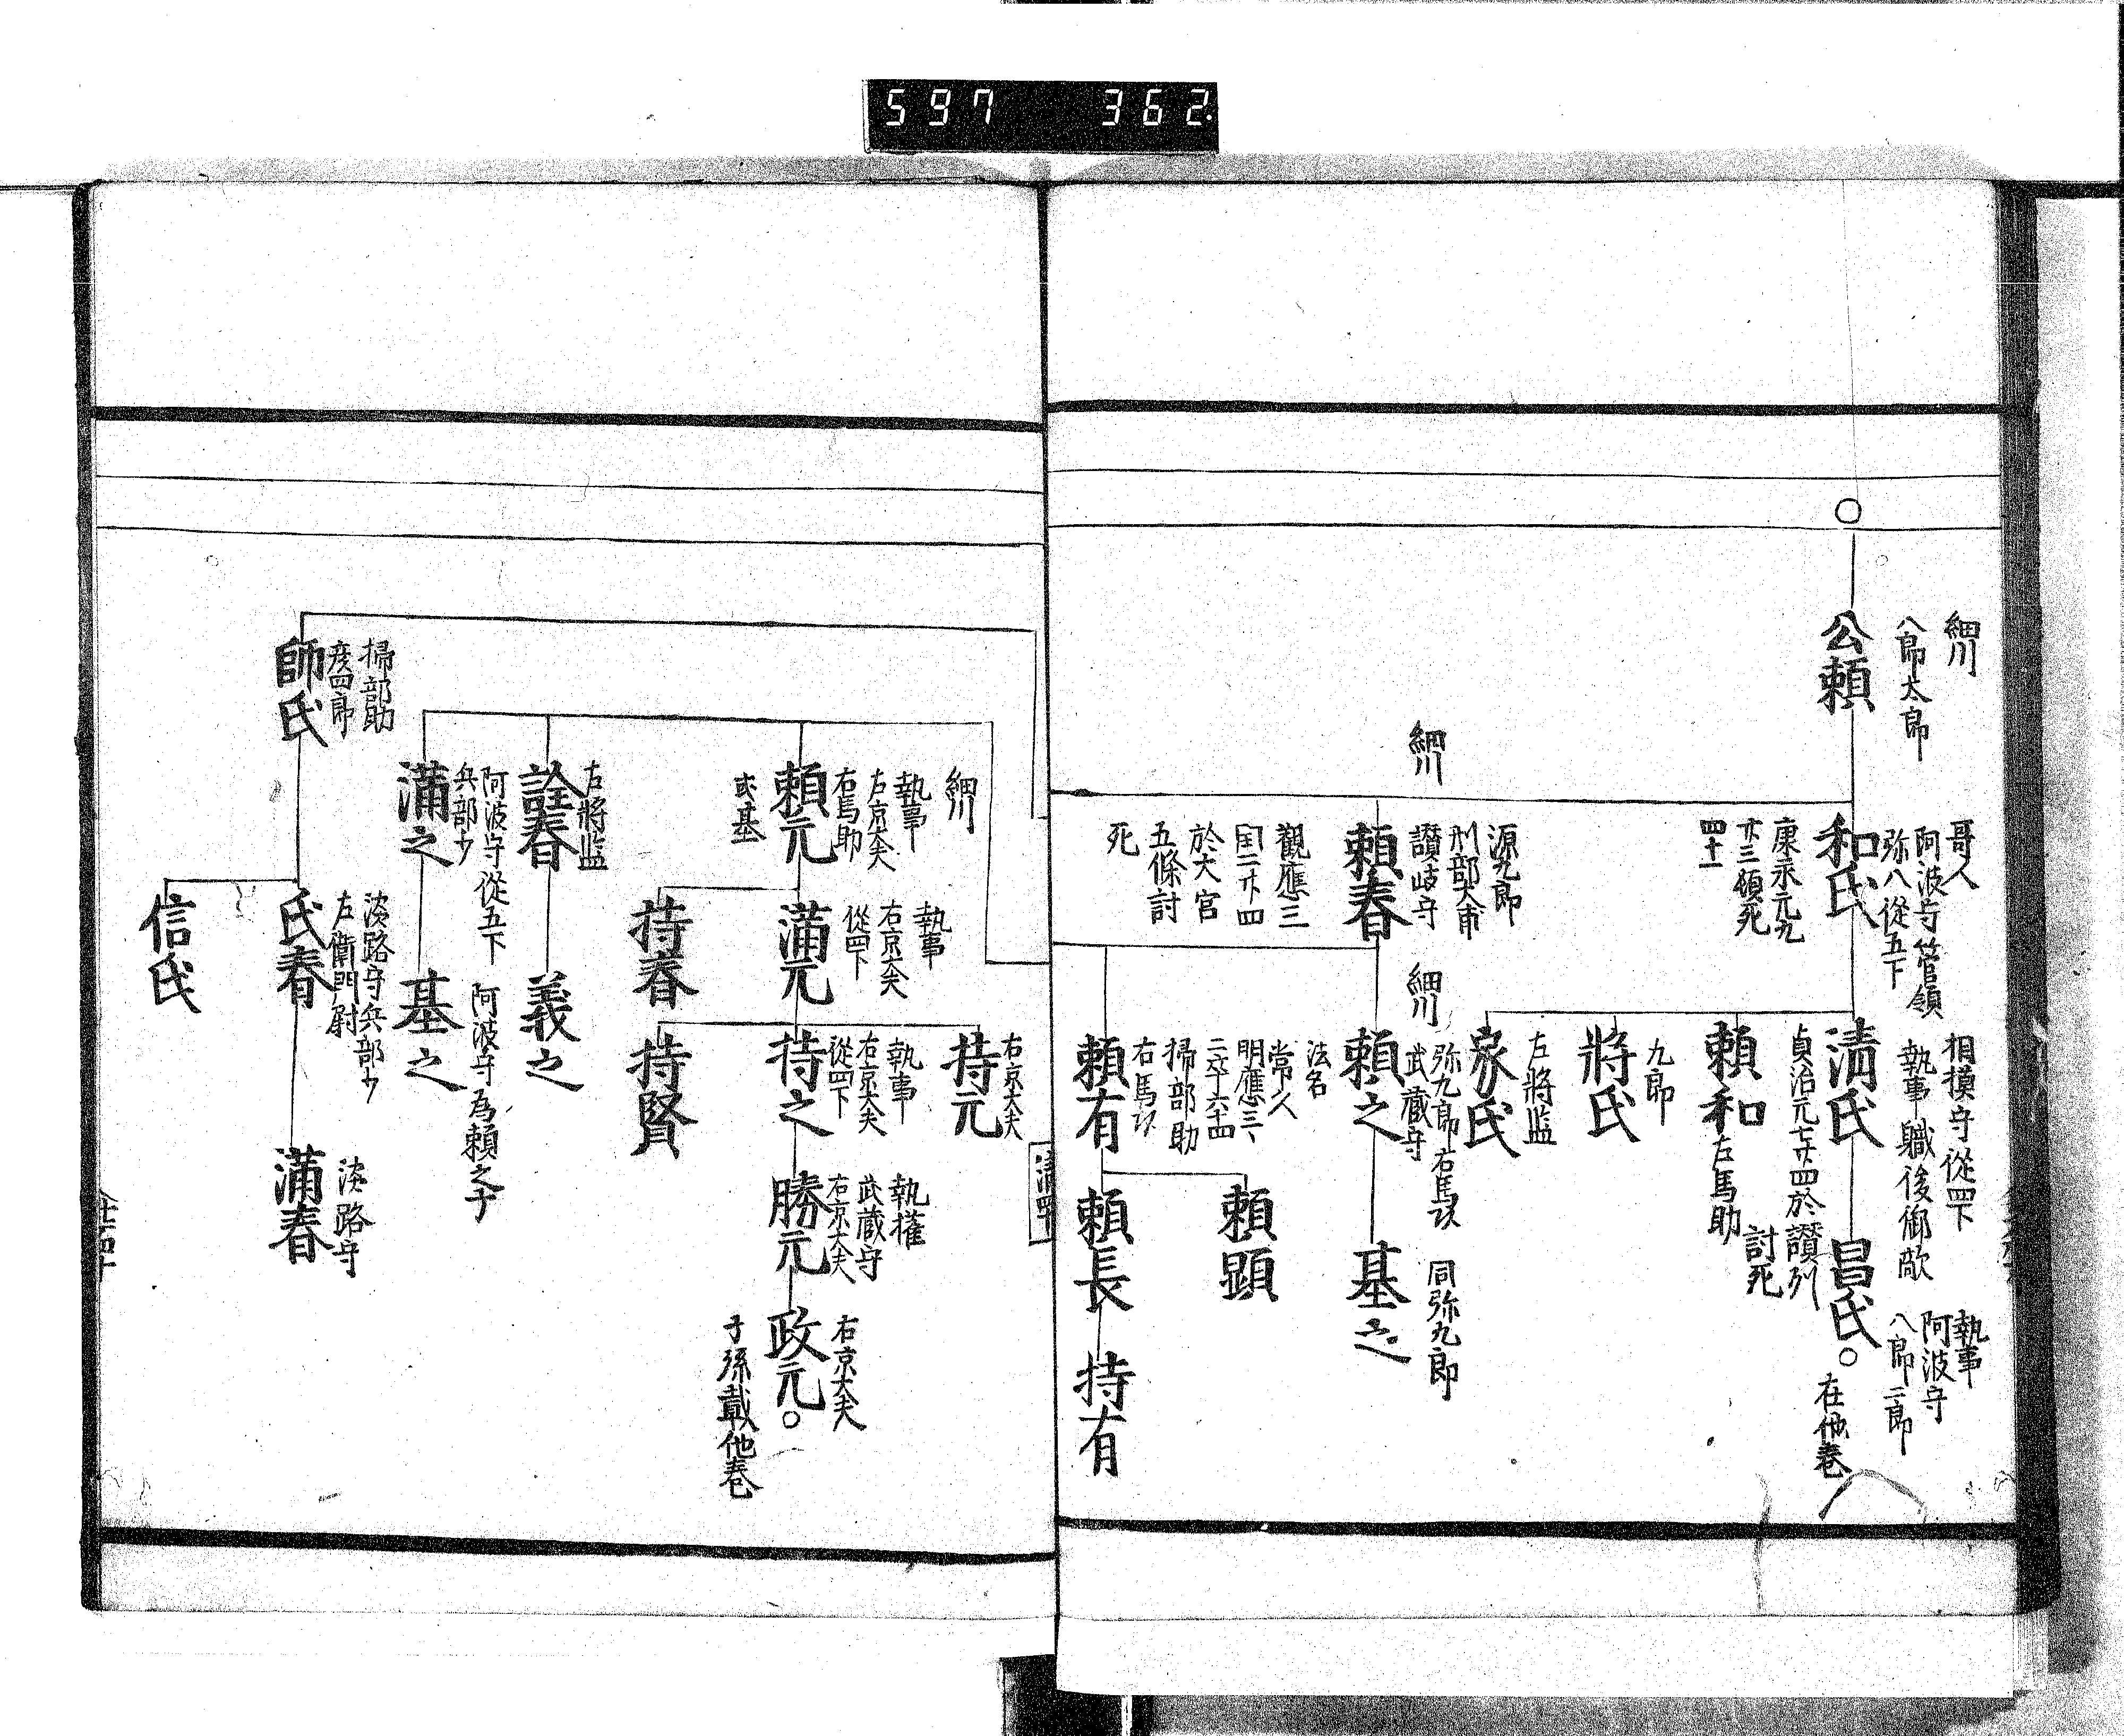 597 362
細川
八郎太郎
公頼
哥人
阿波守管領
弥八従五下
和氏
康永元九
廿三頓死
四十一
相摸守従四下
執事職後御敵
清氏
貞治元七廿四於讃列
討死
執事
阿波守
八郎二郎
昌氏。
在他巻
頼和
左馬助
九郎
将氏
左将監
家氏
細川
源九郎
刑部大甫
讃岐守
頼春
觀應三
閏二廿四
於大宮
五條討
死
細川
弥九郎右馬頭
武蔵守
頼之
法名
常久
明應三、
二卒六十四
同弥九郎
基之
掃部助
右馬頭
頼有
頼顕
頼長
持有
細川
執事
左京大夫
右馬助
頼元
或基
執事
右京大夫
従四下
満元
右京大夫
持元
執事
右京大夫
従四下
持之
執権
武蔵守
右京大夫
勝元
右京大夫
政元。
子孫載他巻
持春
持賢
左将監
詮春
義之
阿波守従五下
兵部少
満之
阿波守為頼之子
基之
掃部助
彦四郎
師氏
淡路守兵部少
左衛門尉
氏春
淡路守
満春
信氏